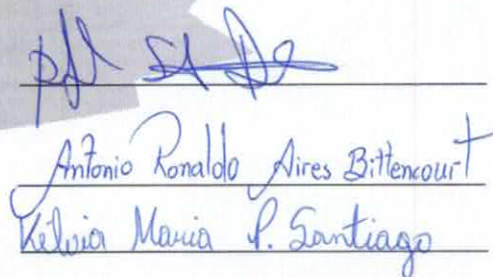 Antonio Ronaldo Aires Bittencourt
Kélvia Maria P. Santiago